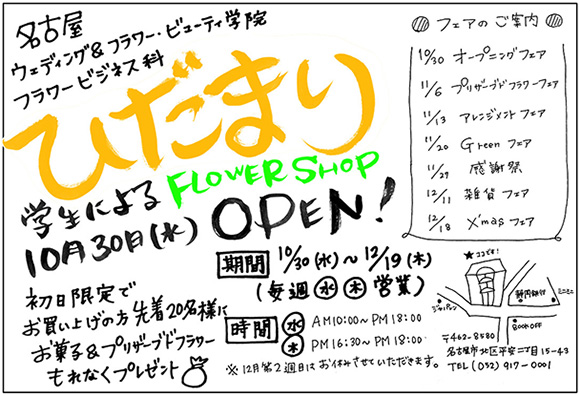 名古屋
ウェディング&フラワー・ビューティ学院
フラワービジネス科
ひだまり
FLOWER SHOP
学生による
10月30日(水) OPEN!
期間 10/30(水)～12/19(木)
(毎週 水 木 営業)
初日限定で
お買い上げの方 先着20名様に
お菓子&プリザーブドフラワー
もれなくプレゼント
時間 水 AM10:00～PM18:00
木 PM16:30～PM18:00
※12月第2週目はお休みさせていただきます。
フェアのご案内
10/30 オープニングフェア
11/6 プリザーブドフラワーフェア
11/13 アレンジメントフェア
11/20 Greenフェア
11/27 感謝祭
12/11 雑貨フェア
12/18 X'masフェア
★ココです!
ジャパレン
静岡銀行
ミニミニ
BOOK OFF
〒462-8580
名古屋市北区平安二丁目15-43
TEL (052) 917-0001